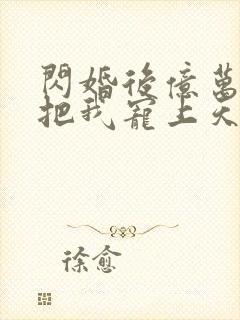 閃婚後億萬
把我寵上天
徐愈